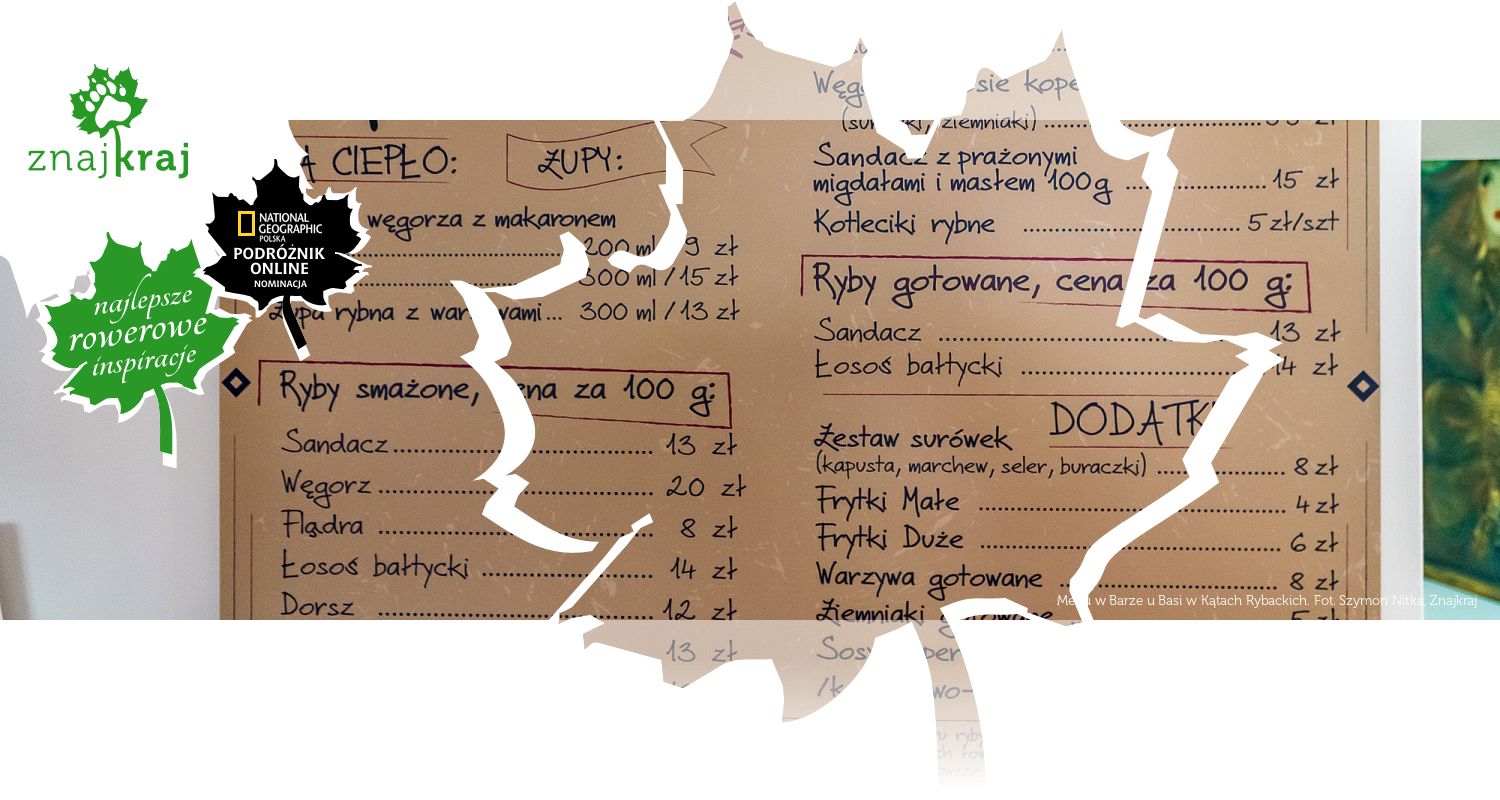 znajkraj
NATIONAL
GEOGRAPHIC
POLSKA
PODRÓŻNIK
ONLINE
NOMINACJA
najlepsze
rowerowe
inspiracje
CIEPŁO:
ZUPY:
węgorza z makaronem
200 ml / 9 zł
300 ml / 15 zł
rybna z warzywami... 300 ml / 13 zł
Ryby smażone, cena za 100 g:
Sandacz 13 zł
Węgorz 20 zł
Flądra 8 zł
Łosoś bałtycki 14 zł
Dorsz 12 zł
13 zł
(surówki, ziemniaki)
Sandacz z prażonymi
migdałami i masłem 100g 15 zł
Kotleciki rybne 5 zł/szt
Ryby gotowane, cena za 100 g:
Sandacz 13 zł
Łosoś bałtycki 14 zł
DODATKI
Zestaw surówek
(kapusta, marchew, seler, buraczki) 8 zł
Frytki Małe 4 zł
Frytki Duże 6 zł
Warzywa gotowane 8 zł
Ziemniaki gotowane 5 zł
Menu w Barze u Basi w Kątach Rybackich. Fot. Szymon Nitka, Znajkraj